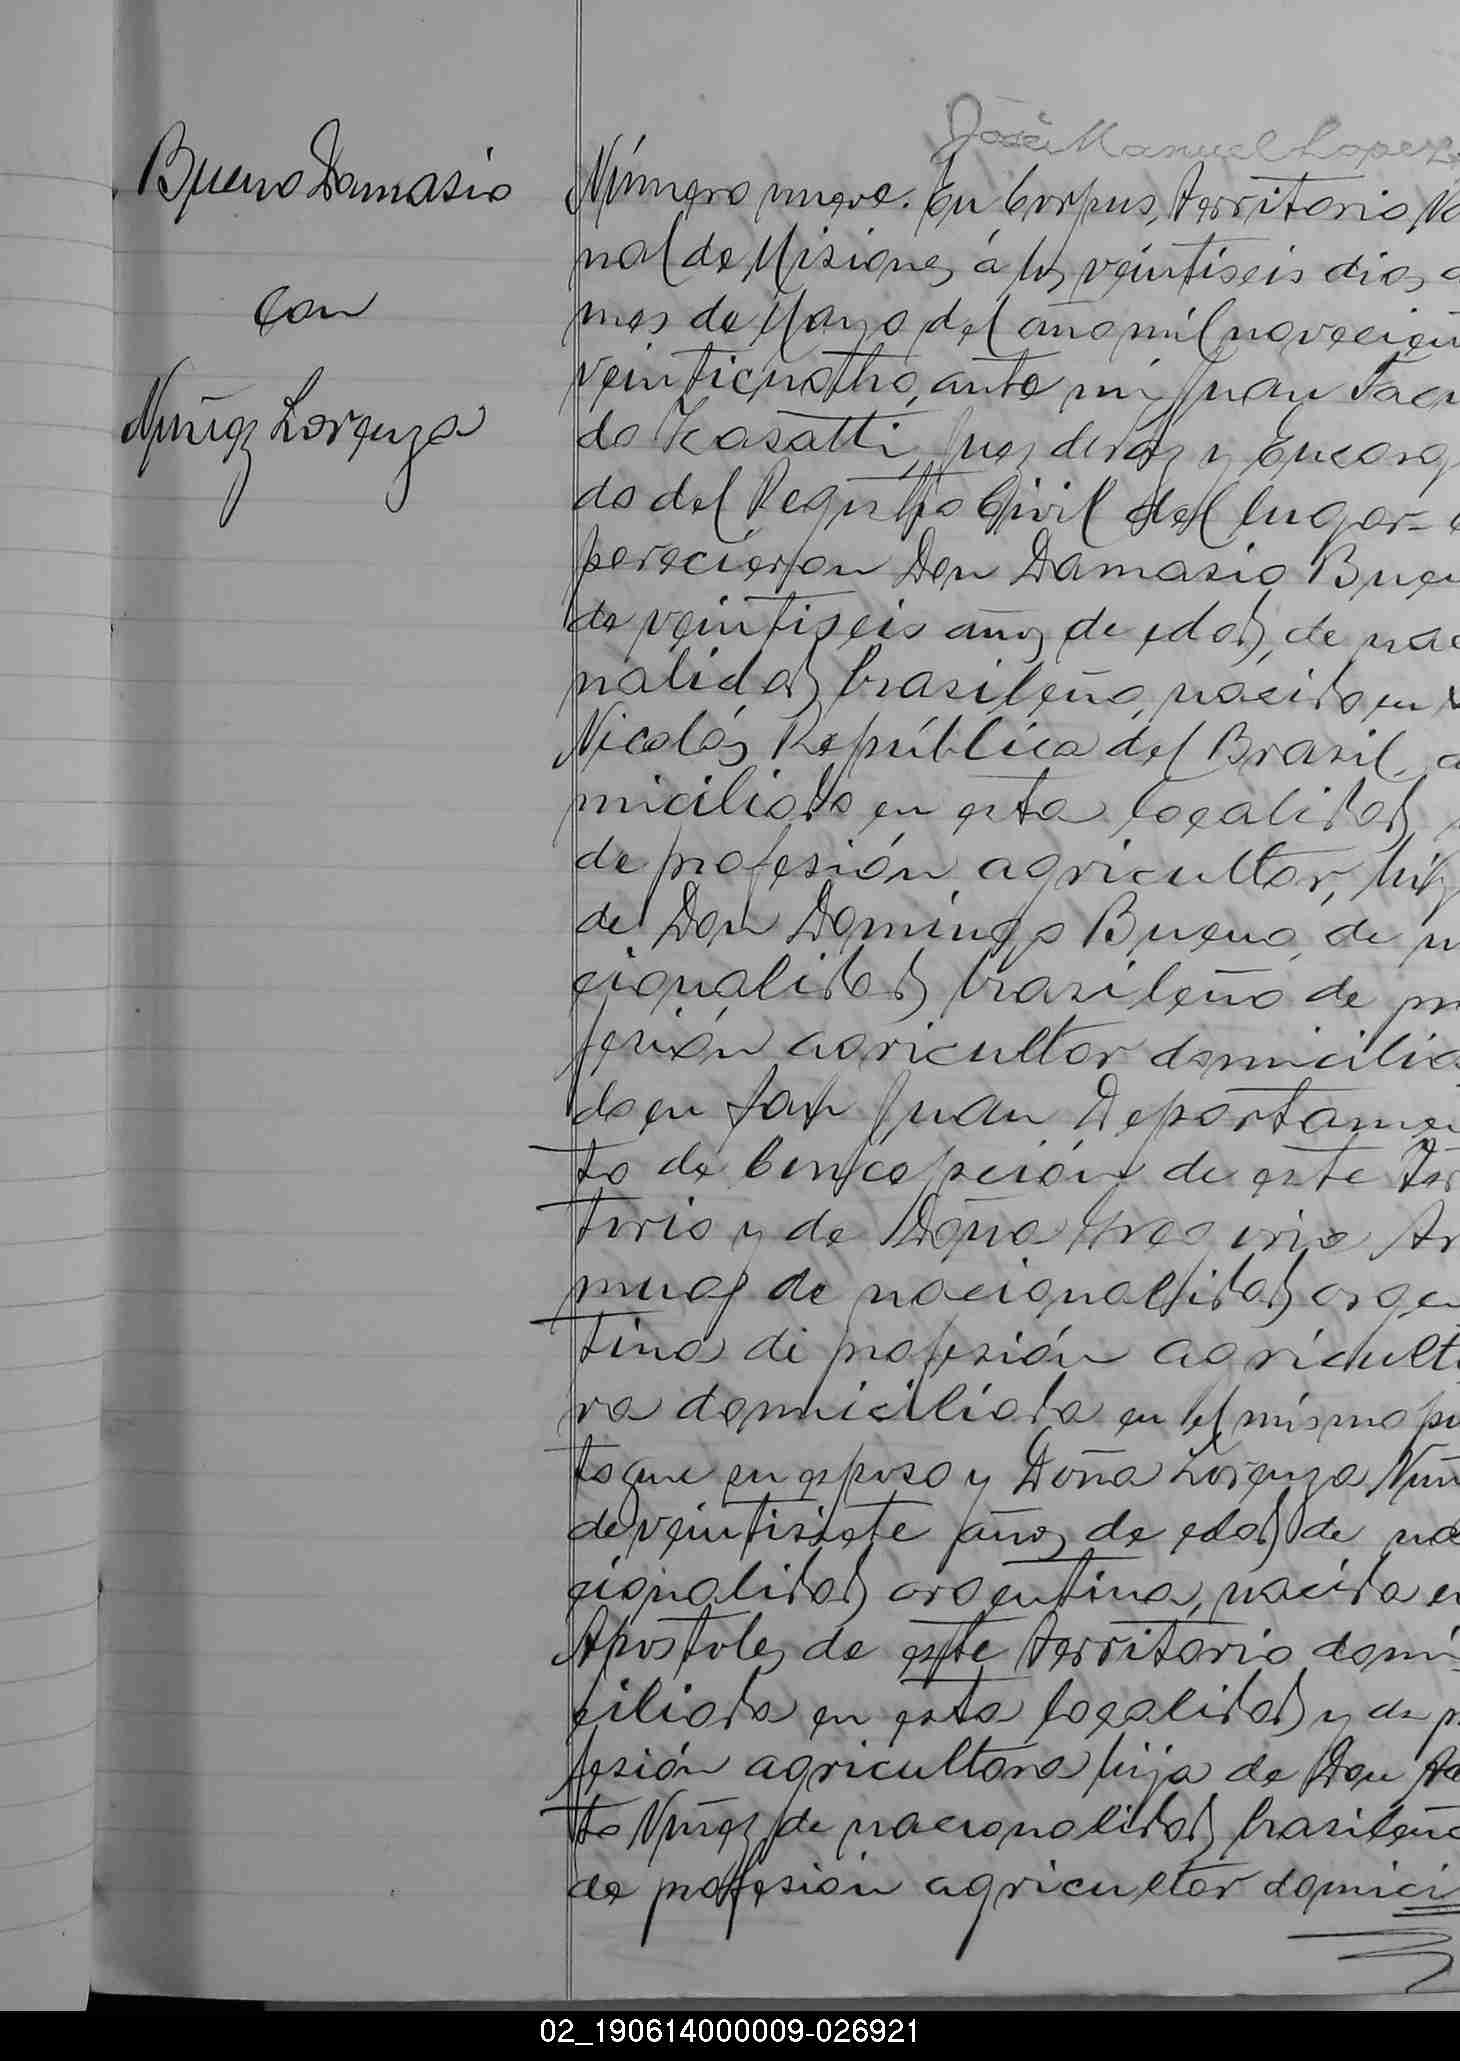 José Manuel Lopez
Bueno Damasio
con
Nuñez Lorenza
Número nueve. En Corpus, territorio
nal de Misiones á los veintiseis dias
mes de Mayo del año mil novecien
veinticuatro, ante mi Juan
do Kasatti, Juez de Paz y Encarga
do del Registro Civil del lugar=
parecieron Don Damasio Buen
de veintiseis años de edad, de nac
nalidad brasileña, nacido en
Nicolás República del Brasil,
miciliado en esta localidad,
de profesión agricultor, hijo
de Don Domingo Bueno, de n
cionalidad brasileño de pr
fesión agricultor domicilia
do en San Juan Departamen
to de Concepción de este Ter
torio y de Doña Gregoria Ar
de nacionalidad argen
tina de profesión agriculto
ra domiciliada en el mismo pu
to que su esposo y Doña Lorenza Nuñ
de veintisiete años de edad de na
cionalidad argentina, nacida en
Apostoles de este territorio domi
ciliada en esta localidad y de p
fesión agricultora hija de Don
to Nuñez de nacionalidad brasileño
de profesión agricultor domici
02_190614000009-026921